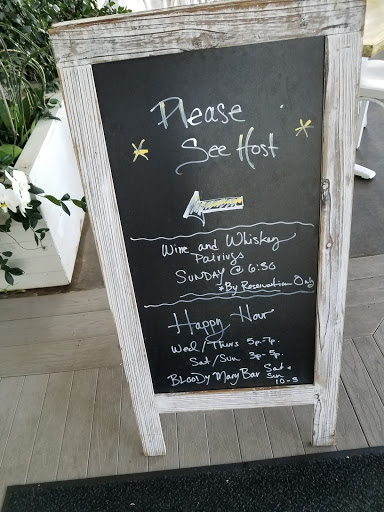 Please
See Host
Wine and Whiskey
Pairings
SUNDAY @ 6:30
*By Reservation Only
Happy Hour
Wed/Thurs 5p-7p.
Sat/Sun 3p-5p.
BLOODY MARY BAR Sat + Sun 10-3